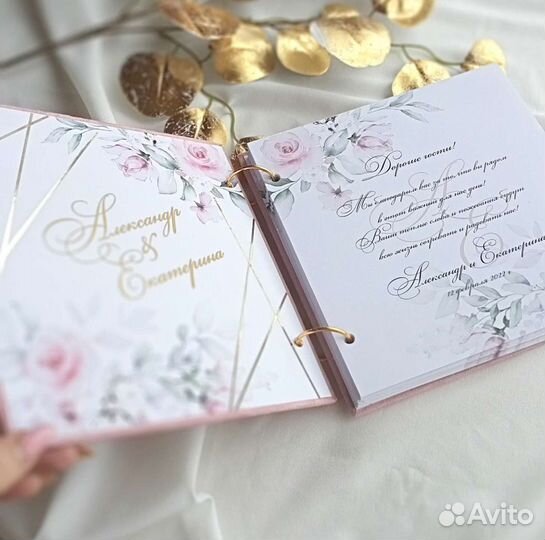 Александр
&
Екатерина
Дорогие гости!
Мы благодарим вас за то, что вы рядом
в этот важный для нас день!
Ваши теплые слова и пожелания будут
всю жизнь согревать и радовать нас!
Александр и Екатерина
12 февраля 2022 г.
Avito